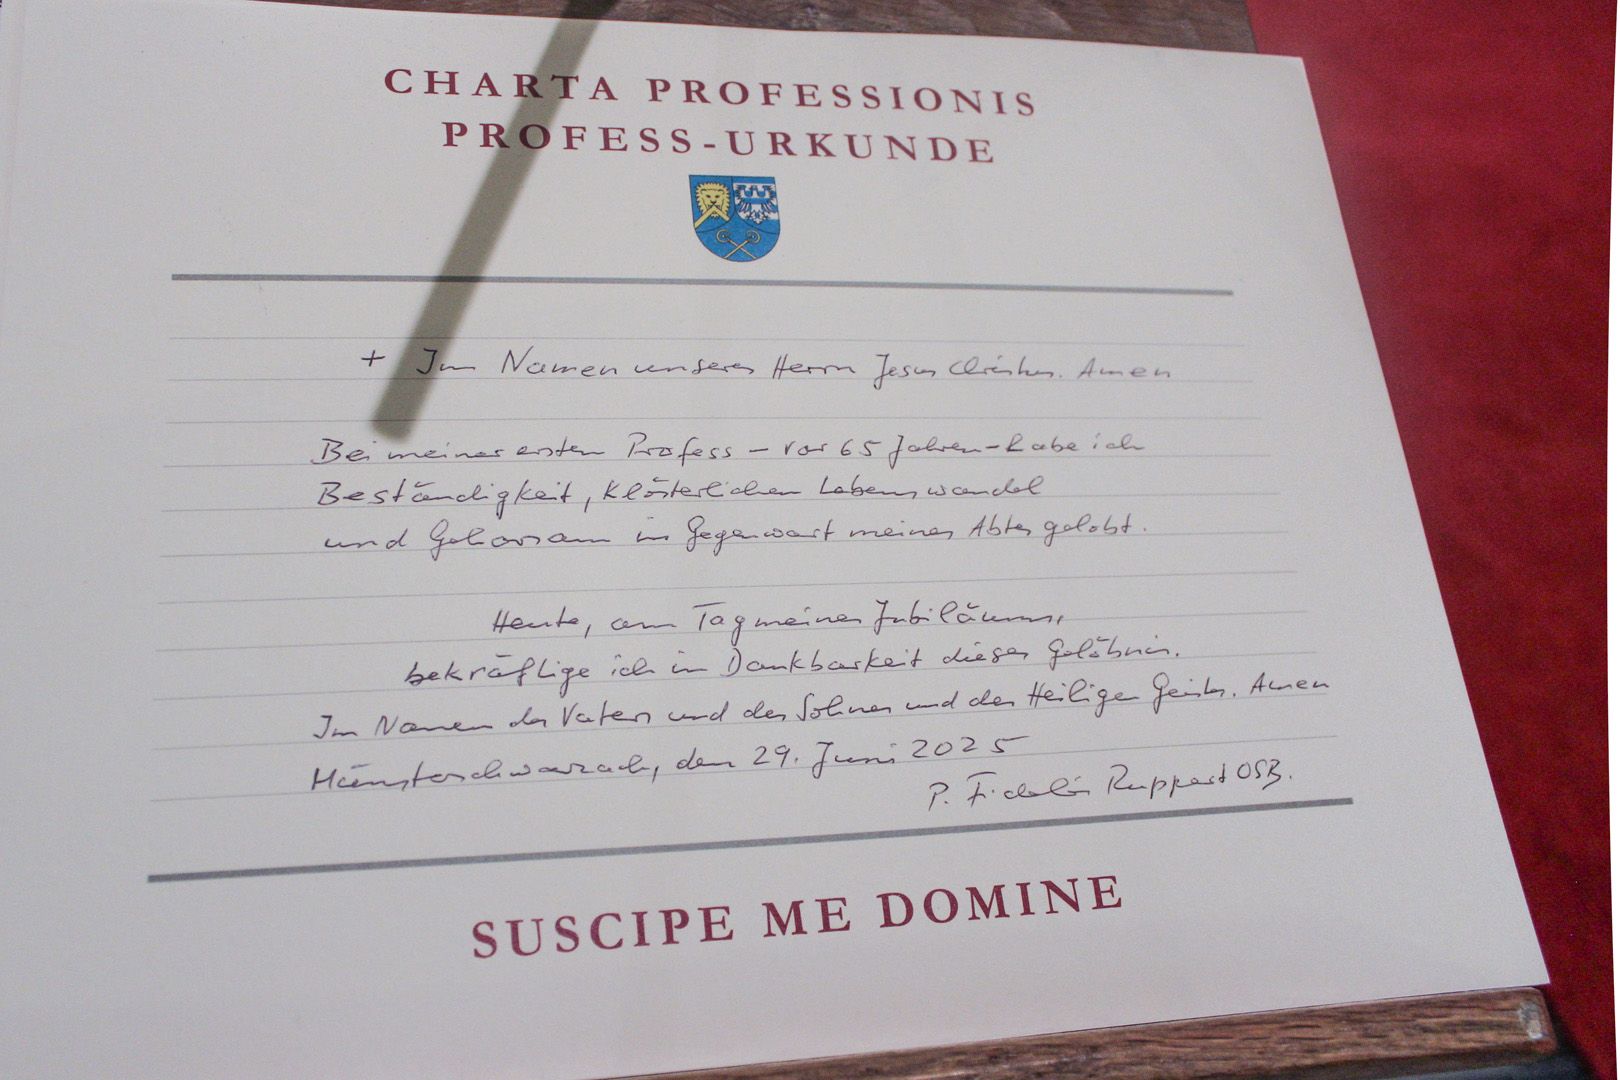 CHARTA PROFESSIONIS
PROFESS-URKUNDE
+ Im Namen unseres Herrn Jesus Christus. Amen
Bei meiner ersten Profess – vor 65 Jahren – habe ich
Beständigkeit, klösterlichen Lebenswandel
und Gehorsam in Gegenwart meines Abtes gelobt.
Heute, am Tag meines Jubiläums,
bekräftige ich in Dankbarkeit dieses Gelöbnis.
Im Namen des Vaters und des Sohnes und des Heiligen Geistes. Amen
Münsterschwarzach, den 29. Juni 2025
P. Fidelis Ruppert OSB.
SUSCIPE ME DOMINE